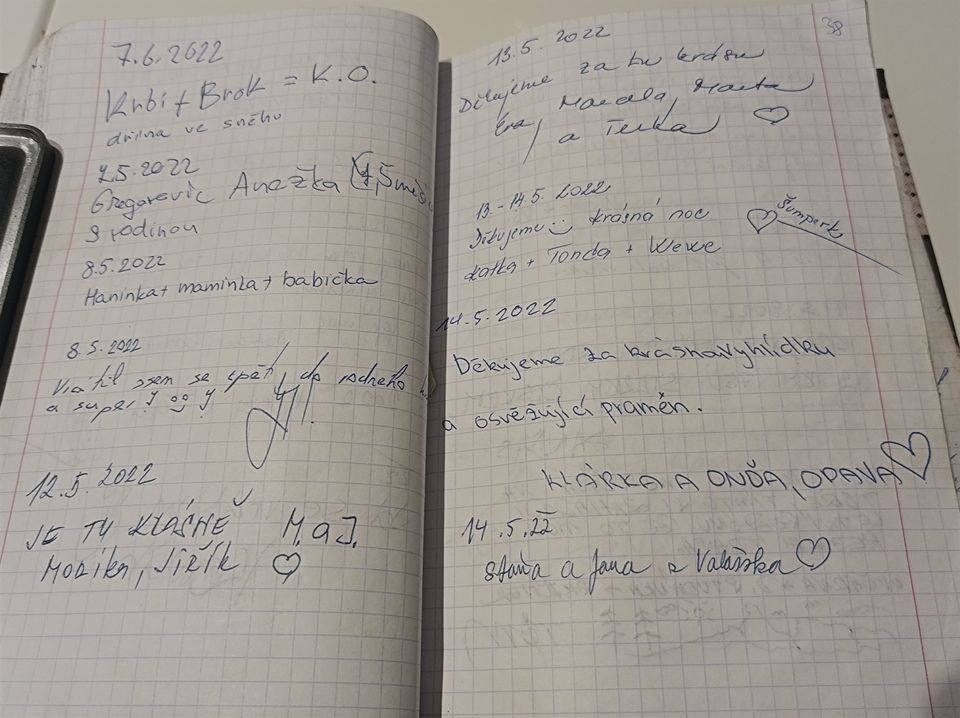 7.6.2022
Krbi + Brok = K.O.
dřina ve sněhu
7.5.2022
Gregarevic Anežka (4,5 měsí
s rodinou
8.5.2022
Haninka + maminka + babička
8.5.2022
Vrátil jsem se zpět do rodného
a super
12.5.2022
JE TU KRÁSNĚ M. a J.
Monika, Jiřík
38
13.5.2022
Děkujeme za tu krásu
Eva, Magda, Marta
a Terka
13.-14.5.2022
Děkujeme :) krásná noc
Katka + Tonda + Wewe
Šumperk
14.5.2022
Děkujeme za krásnou vyhlídku
a osvěžující pramen.
KLÁRKA A ONĎA, OPAVA
14.5.22
Stáňa a Jana z Valašska